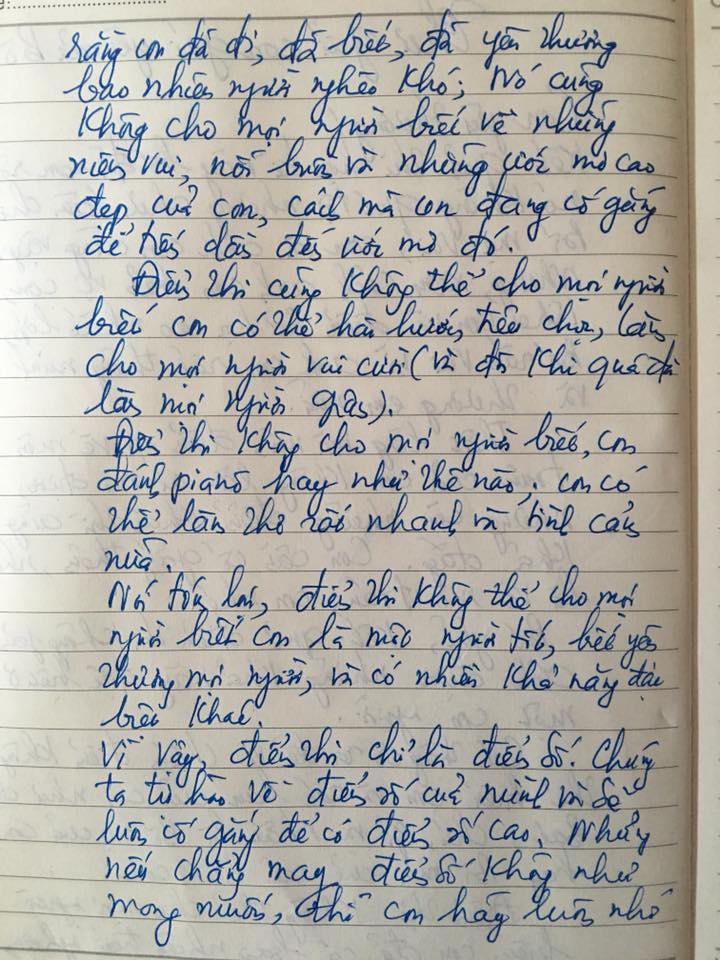 rằng con đã đi, đã biết, đã yêu thương
bao nhiêu người nghèo khó; Nó cũng
không cho mọi người biết về những
niềm vui, nỗi buồn và những ước mơ cao
đẹp của con, cách mà con đang cố gắng
để tiến dần đến ước mơ đó.
Điểm thi cũng không thể cho mọi người
biết con có thể hài hước, tếu chọc, làm
cho mọi người vui cười (và đôi khi quá đà
làm mọi người giận).
Điểm thi không cho mọi người biết, con
đánh pianô hay như thế nào, con có
thể làm thơ rất nhanh và tình cảm
nữa.
Nói tóm lại, điểm thi không thể cho mọi
người biết con là một người tốt, biết yêu
thương mọi người, và có nhiều khả năng đặc
biệt khác.
Vì vậy, điểm thi chỉ là điểm số. Chúng
ta tự hào về điểm số của mình và sẽ
luôn cố gắng để có điểm số cao. Nhưng
nếu chẳng may điểm số không như
mong muốn, thì con hãy luôn nhớ